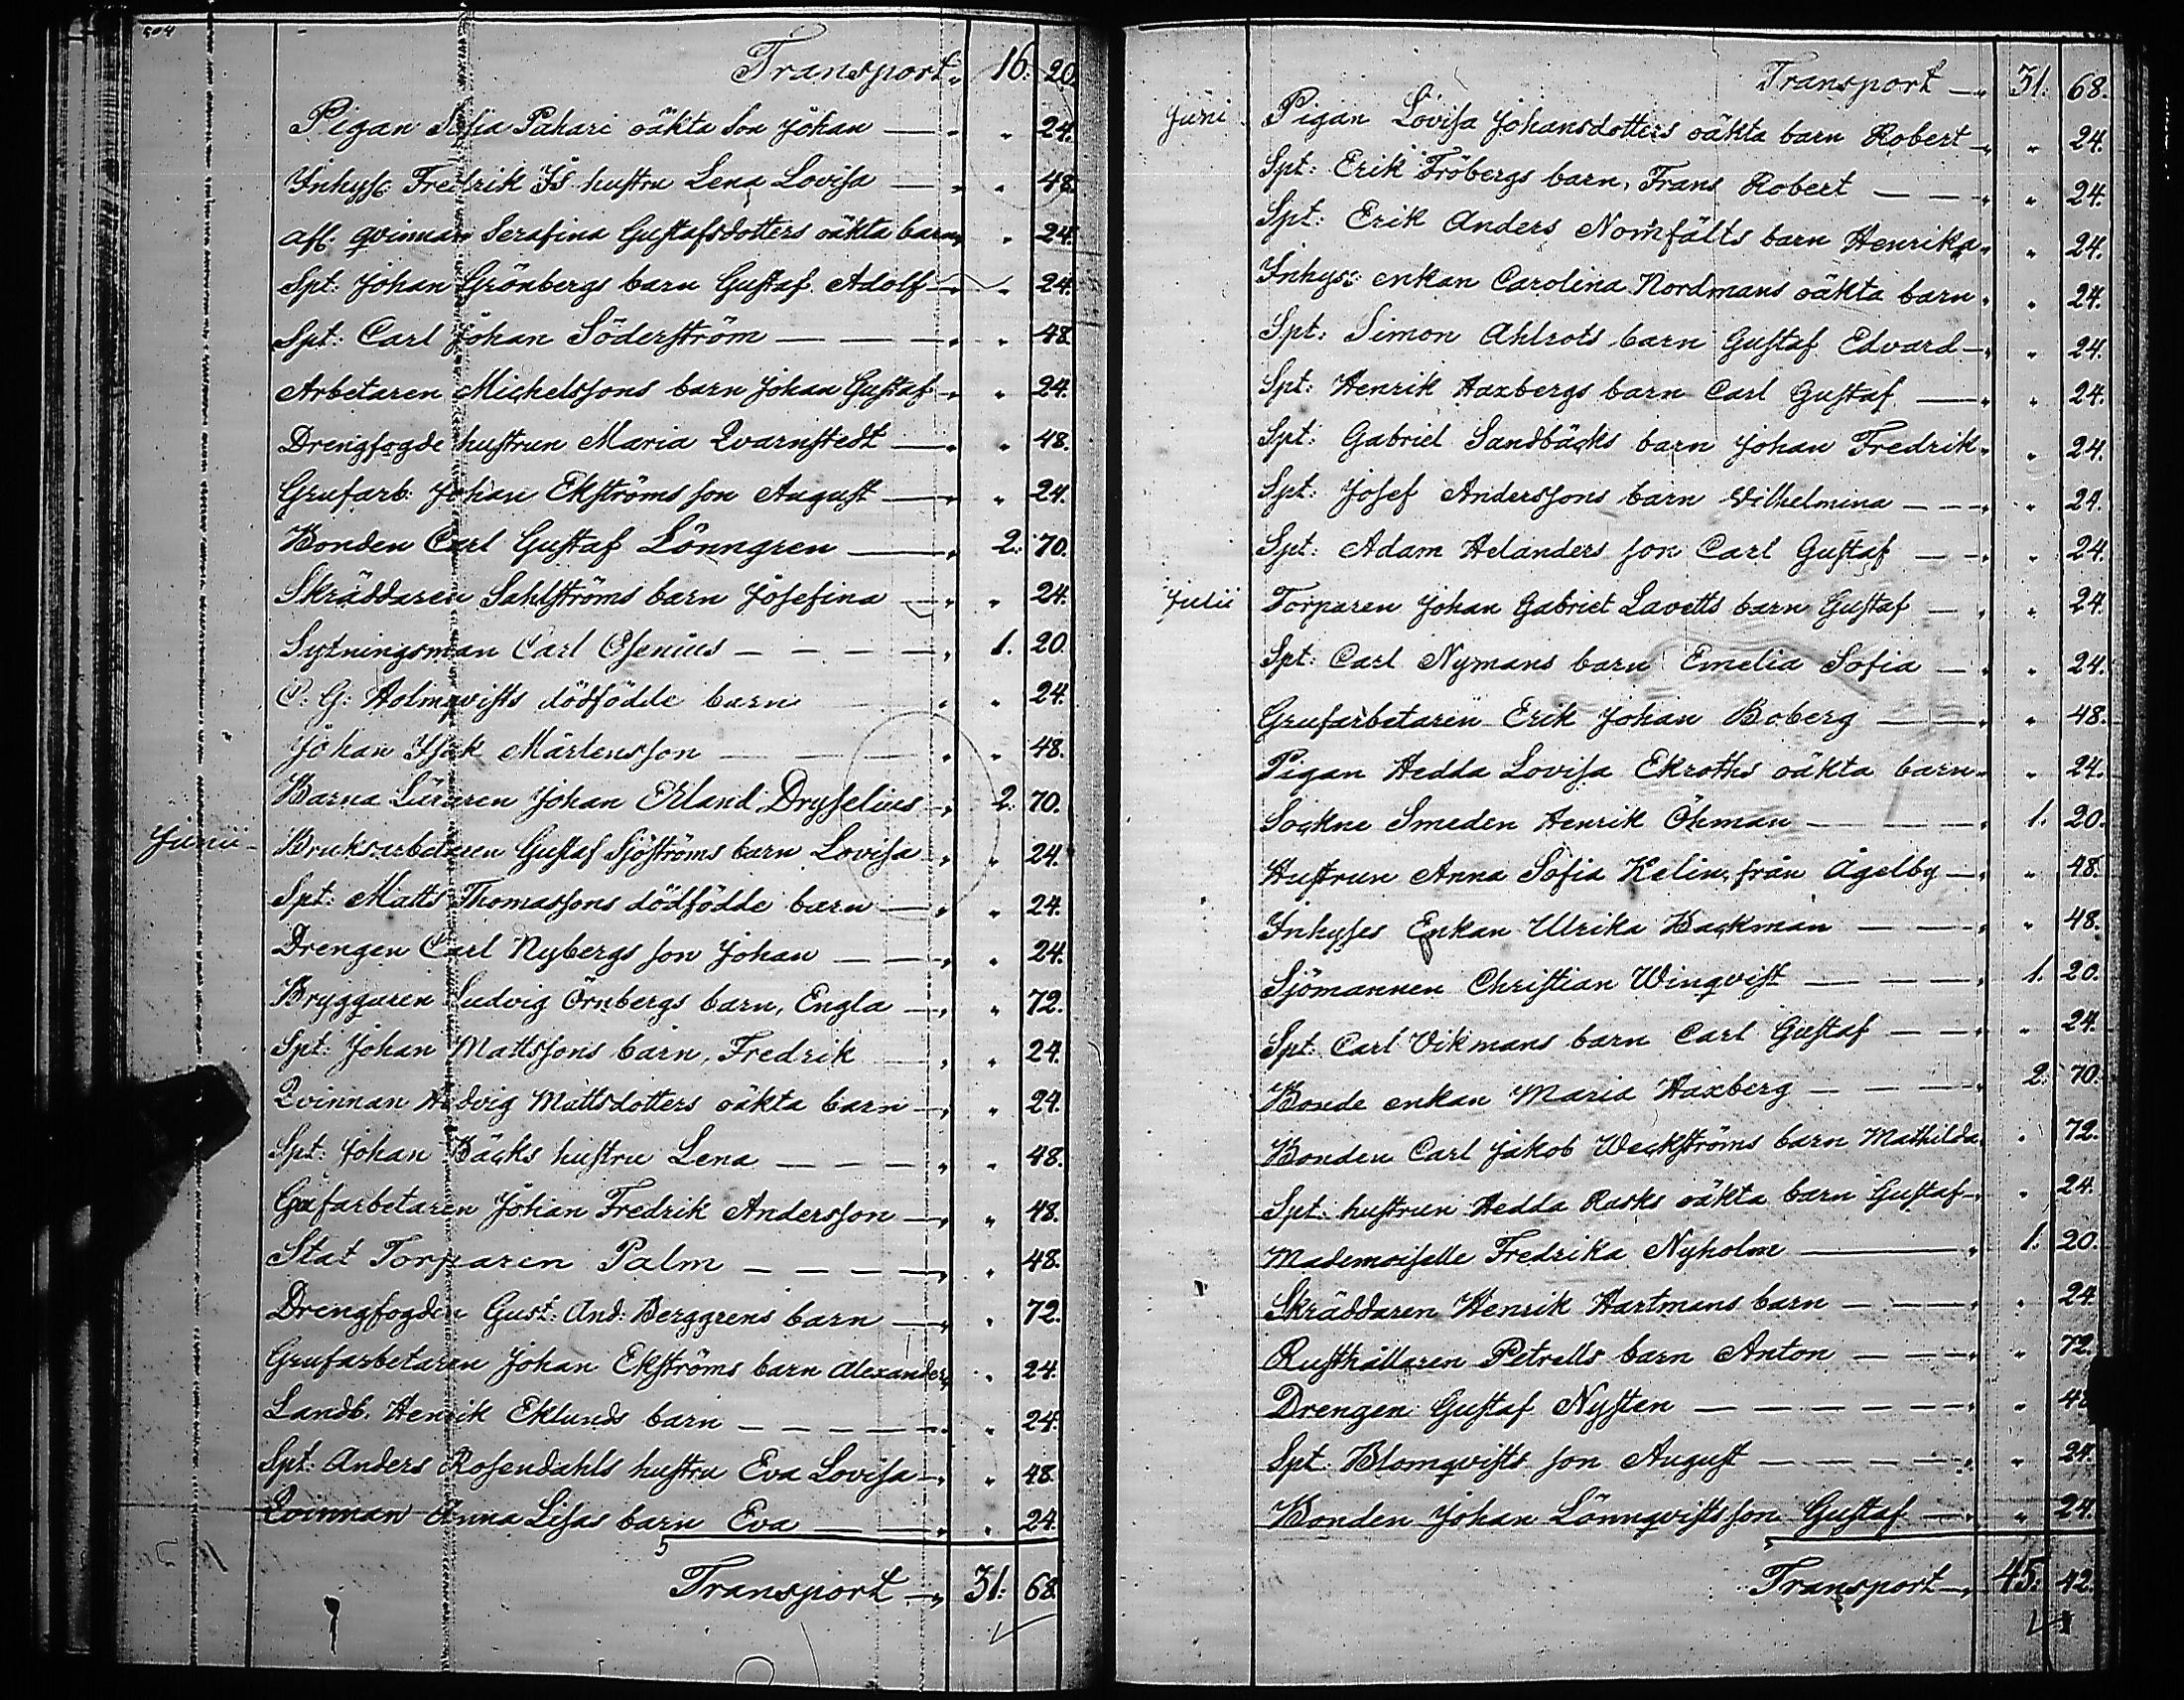 Transport „ 16. 20.
Pigan Sofia Pahari oäkta Son Johan — „ „ 24.
Inhyse Fredrik Is hustru Lena Lovisa — „ „ 48.
afl. qvinnan Serafina Gustafsdotters oäkta barn „ „ 24.
Spt: Johan Grönbergs barn Gustaf Adolf — „ „ 24.
Spt: Carl Johan Söderström — — — „ „ 48.
Arbetaren Michelssons barn Johan Gustaf — „ „ 24.
Drengfogde hustrun Maria Qvarnstedt — „ „ 48.
Grufarb: Johan Ekströms son August — „ „ 24.
Bonden Carl Gustaf Lönngren — „ 2. 70.
Skräddaren Sahlströms barn Josefina — „ „ 24.
Sytningsman Carl Esenius — — — — „ 1. 20.
C: G: Holmqvists dödfödde barn „ „ 24.
Johan Isak Mårtensson — — — „ „ 48.
Barna Läraren Johan Erland Drysselius — „ 2. 70.
Junii — Bruksarbetaren Gustaf Sjöströms barn Lovisa — „ „ 24.
Spt: Matts Thomassons dödfödde barn — „ „ 24.
Drengen Carl Nybergs son Johan — — „ „ 24.
Bryggaren Ludvig Örnbergs barn, Engla — „ „ 72.
Spt: Johan Mattssons barn, Fredrik — „ „ 24.
Qvinnan Hedvig Mattsdotters oäkta barn — „ „ 24.
Spt: Johan Bäcks hustru Lena — — — — „ „ 48.
Grufarbetaren Johan Fredrik Andersson — „ „ 48.
Stat Torparen Palm — — — — „ „ 48.
Drengfogden Gust: And: Berggrens barn — „ „ 72.
Grufarbetaren Johan Ekströms barn Alexander „ „ 24.
Landb. Henrik Eklunds barn — — — — — „ „ 24.
Spt: Anders Rosendahls hustru Eva Lovisa — „ „ 48.
Qvinnan Anna Lisas barn Eva — — „ „ 24.
Transport — „ 31. 68.
Transport — „ 31. 68.
Juni — Pigan Lovisa Johansdotters oäkta barn Robert — „ „ 24.
Spt: Erik Fröbergs barn, Frans Robert — — — „ „ 24.
Spt: Erik Anders Nomfälts barn Henrika „ „ 24.
Inhyse: enkan Carolina Nordmans oäkta barn „ „ 24.
Spt: Simon Ahlrots barn Gustaf Edvard — „ „ 24.
Spt: Henrik Haxbergs barn Carl Gustaf — „ „ 24.
Spt: Gabriel Sandbäcks barn Johan Fredrik „ „ 24.
Spt: Josef Anderssons barn Vilhelmina — — „ „ 24.
Spt: Adam Helanders son Carl Gustaf — — „ „ 24.
Julii Torparen Johan Gabriel Lavetts barn Gustaf — „ „ 24.
Spt: Carl Nymans barn Emelia Sofia — „ „ 24.
Grufarbetaren Erik Johan Boberg — — „ „ 48.
Pigan Hedda Lovisa Ekroths oäkta barn „ „ 24.
Sockne Smeden Henrik Öhman — — — — „ 1. 20.
Hustrun Anna Sofia Kelin, från Ågelby — „ „ 48.
Inhyses Enkan Ulrika Backman — — — „ „ 48.
Sjömannen Christian Winqvist — — — — „ 1. 20.
Spt: Carl Vikmans barn Carl Gustaf — — „ „ 24.
Bonde enkan Maria Haxberg — — — — „ 2. 70.
Bonden Carl Jakob Weckströms barn Mathilda „ „ 72.
Spt: hustrun Hedda Rasks oäkta barn Gustaf — „ „ 24.
Mademoiselle Fredrika Nyholm — „ 1. 20.
Skräddaren Henrik Hartmans barn — — — „ „ 24.
Rusthållaren Petrells barn Anton — — — „ „ 72.
Drengen Gustaf Nysten — — — — — — „ „ 48
Spt: Blomqvists son August — — — — — „ „ 24.
Bonden Johan Lönnqvists son Gustaf — „ „ 24.
Transport — „ 45. 42.